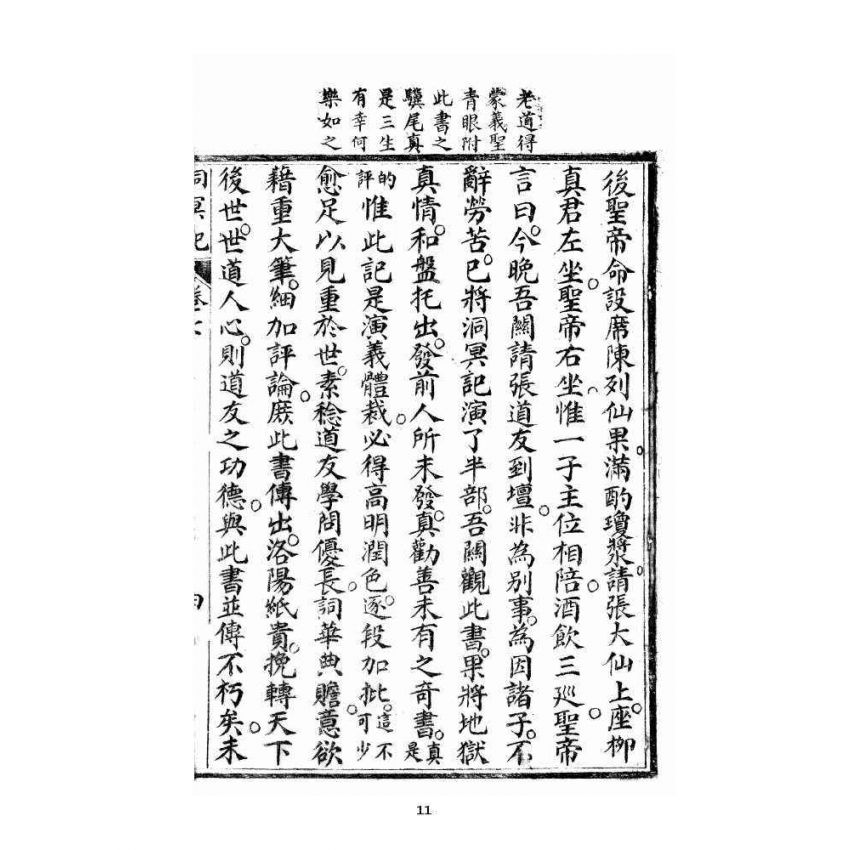 老道得
蒙義聖
青眼附
此書之
驥尾真
是三生
有幸何
樂如之
後聖帝命設席陳列仙果滿酌瓊漿請張大仙上座柳
真君左坐聖帝右坐惟一子主位相陪酒飲三廵聖帝
言曰今晚吾關請張道友到壇非為別事為因諸子不
辭勞苦已將洞冥記演了半部吾關觀此書果將地獄
真情和盤托出發前人所未發真勸善未有之奇書真是
的評惟此記是演義體裁必得高明潤色逐段加批這不可少
愈足以見重於世素稔道友學問優長詞華典贍意欲
藉重大筆細加評論庶此書傳出洛陽紙貴挽轉天下
後世世道人心則道友之功德與此書並傳不朽矣未
洞冥記 卷七
11